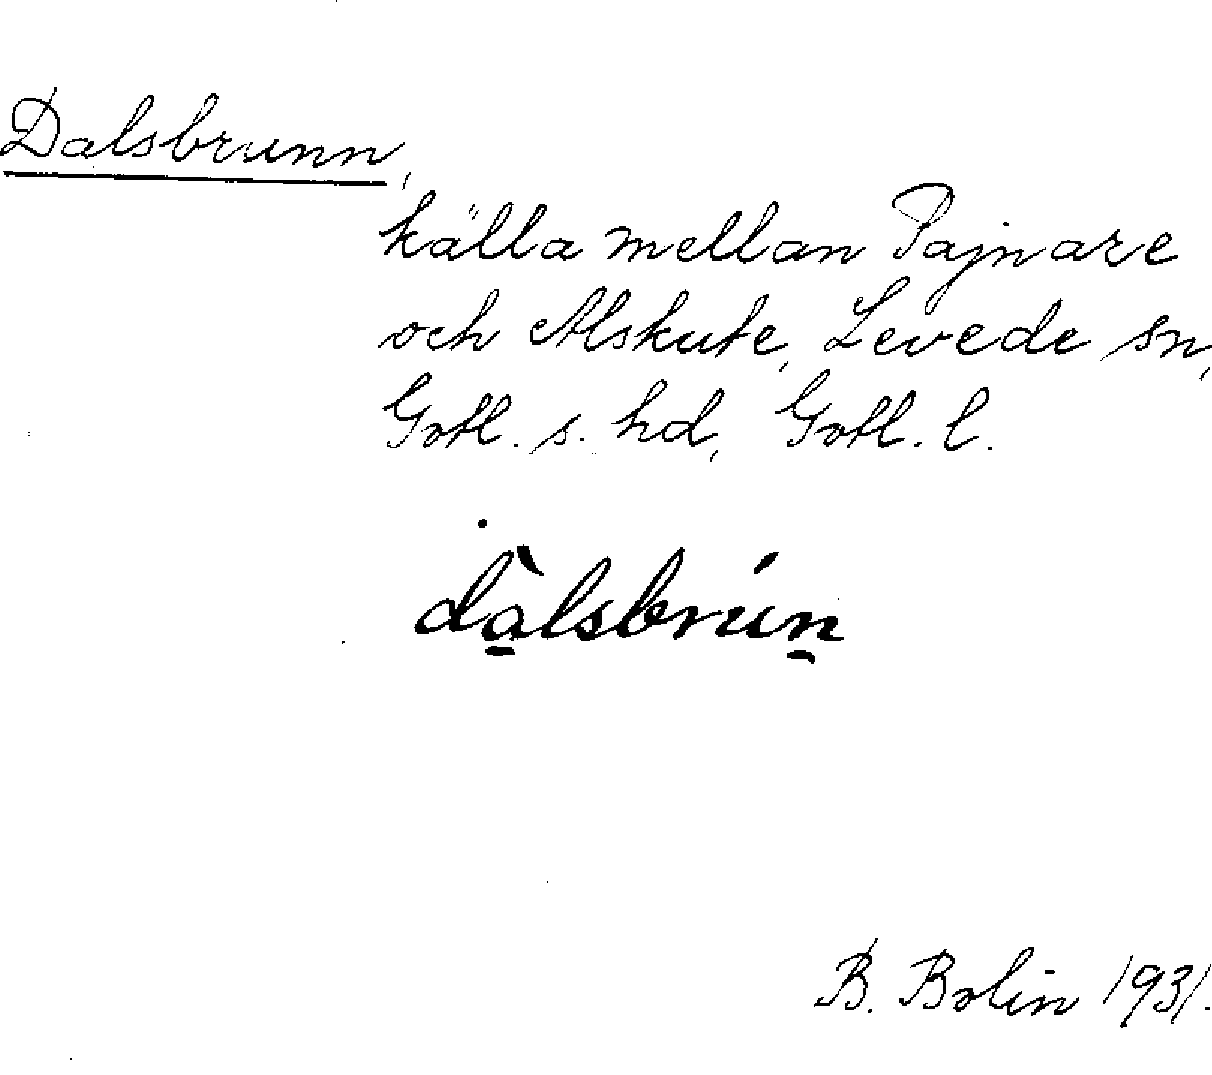 Dalsbrunn,
källa mellan Pajnare
och Alskute, Levede sn,
Gotl. s. hd, Gotl. l.
dàlsbrún
B. Bolin 1931.